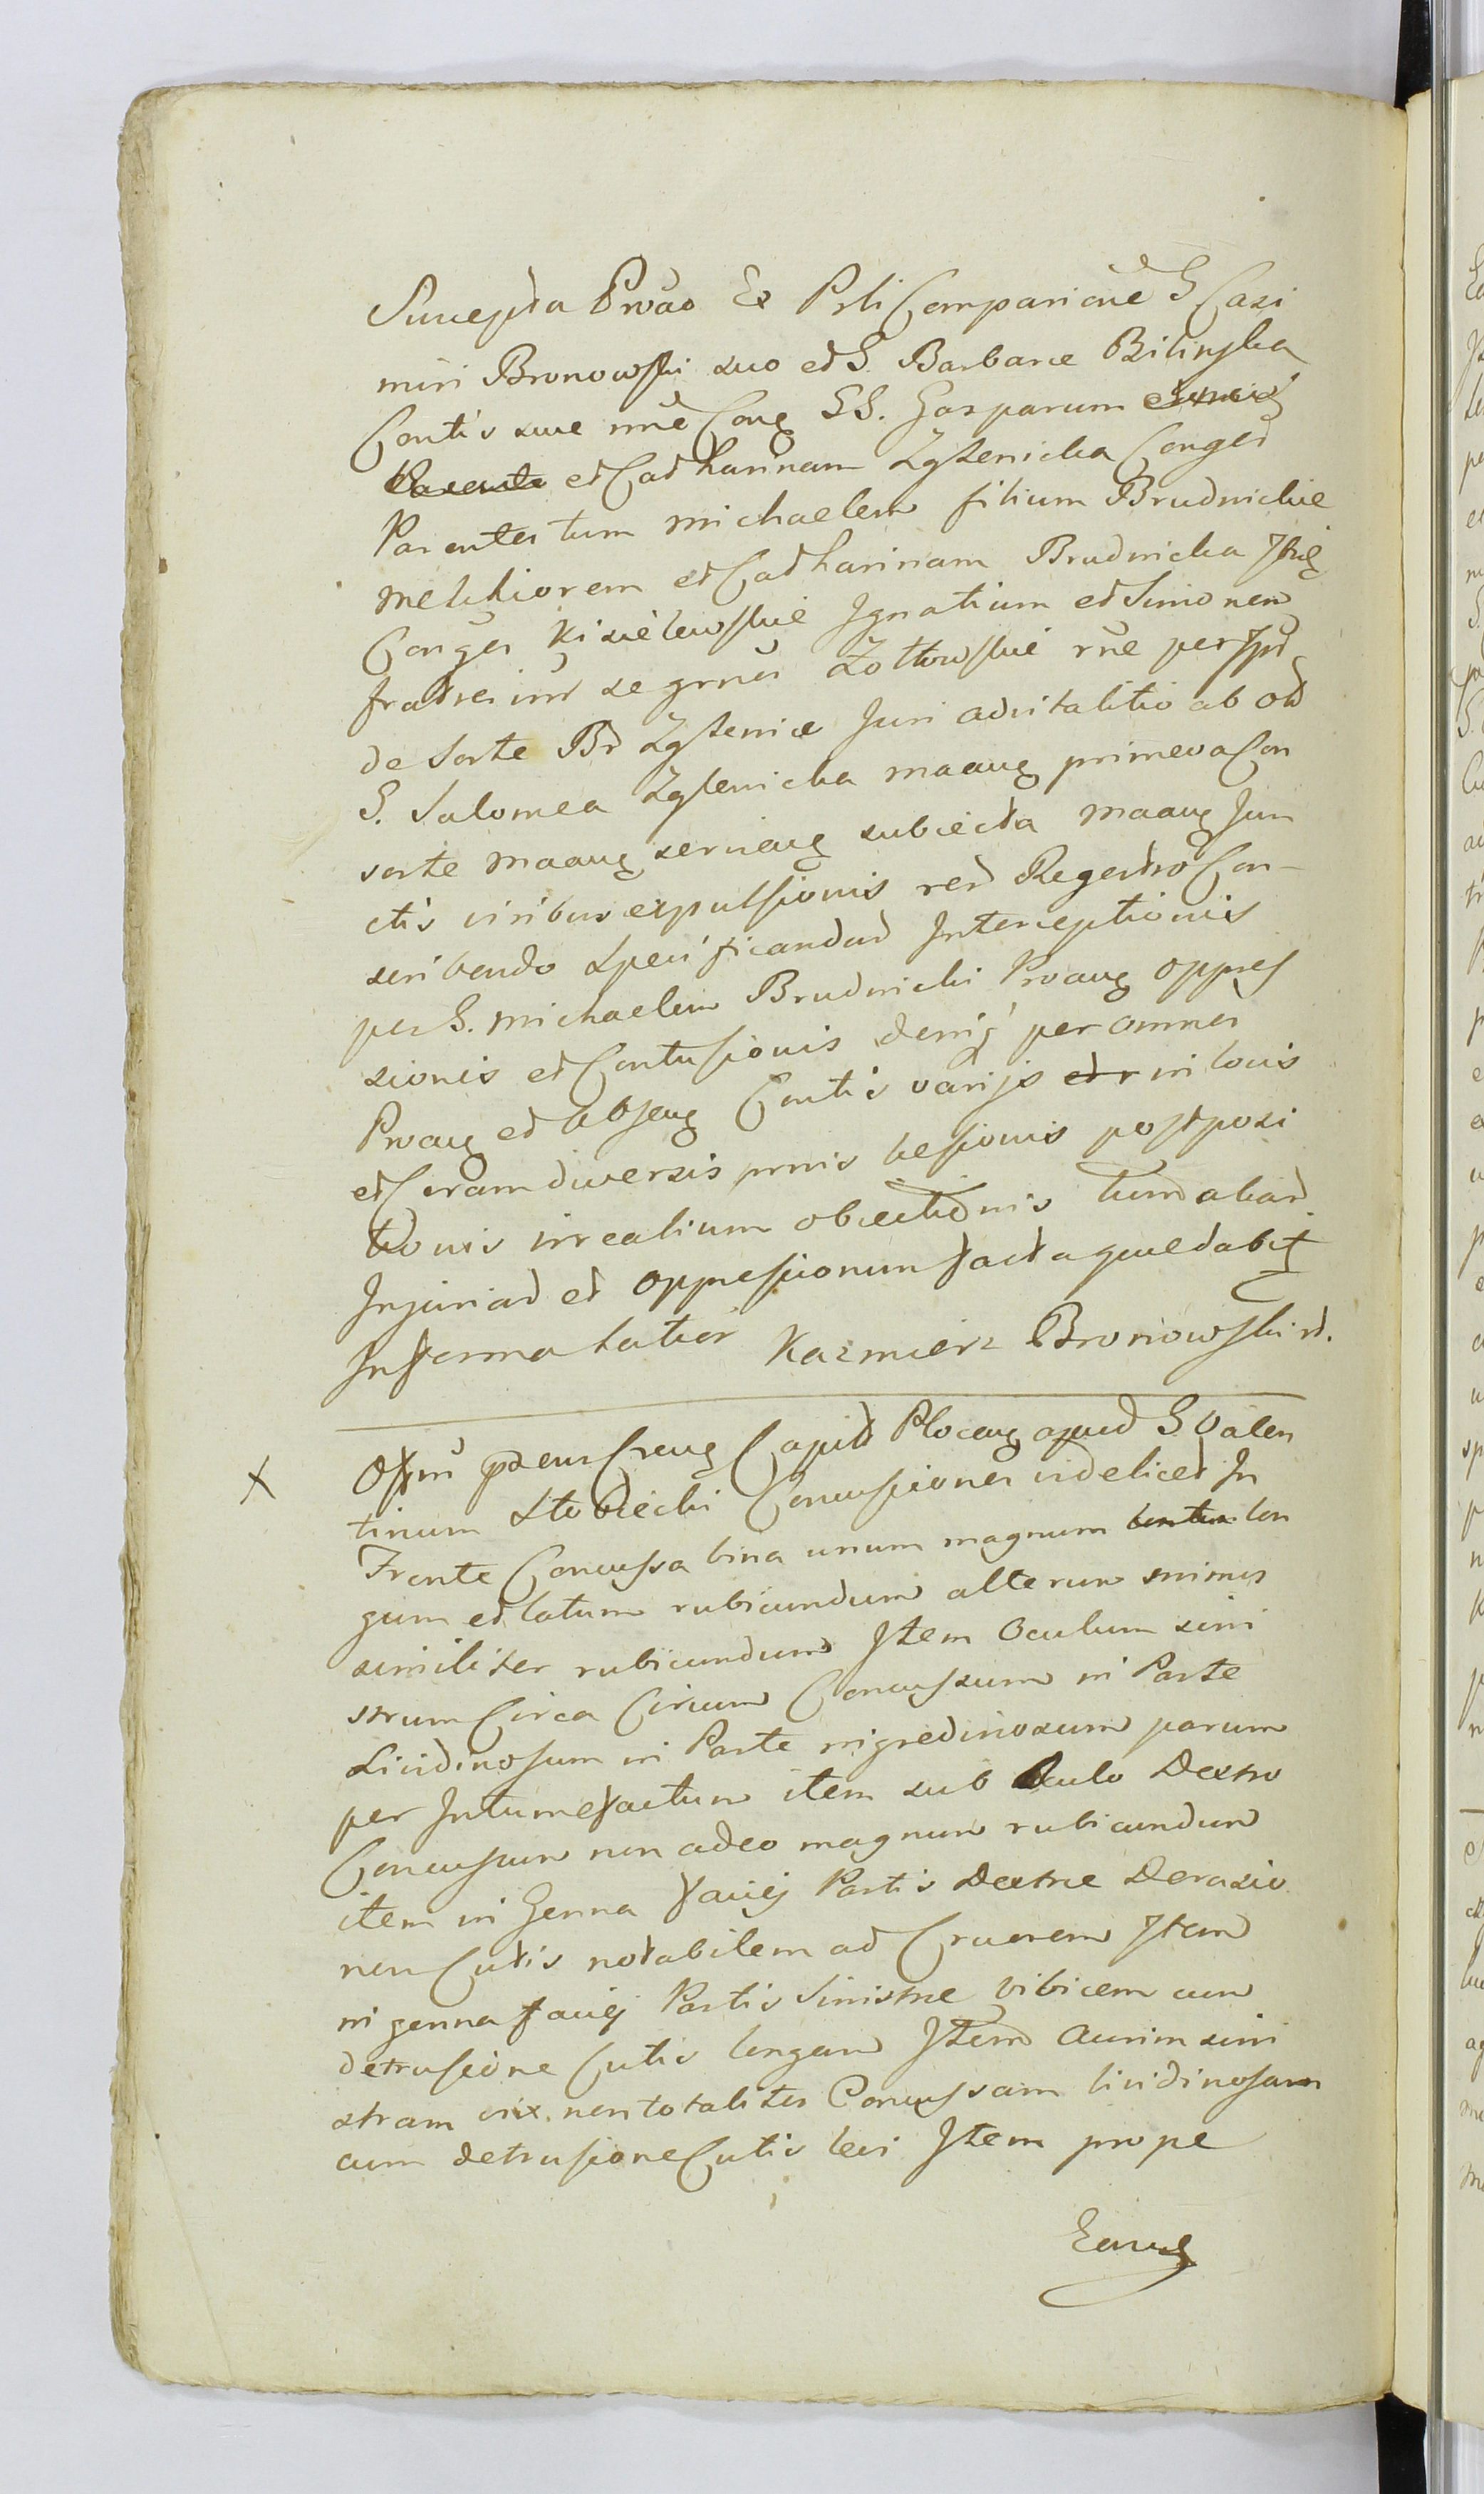 Suscepta Prvao Ex Prli Comparicne G Casi
miri Bronowski suo et G. Barbarae Bilinska
Contis suae nne Cong GG. Gasparum
et Catharinam Zglenicka Conges
Parentes tum Michaelem filium Brudnickie
Melchiorem et Catharinam Brudnicka
Conges Kisielewskie Ignatium et Simonem
fratres inr se grnos Zołtowskie rne per
de Sorte Br Zglenice Juri advitalitio ab oli
G. Salomea Zglenicka maang primeva Con
sorte maang serviang subiecta maang Jun
ctis viribus expulsionis rer Regestro Con-
scribendo Specificandar Interceptionis
per G. Michaelem Brudnicki Proang oppres
sionis et Contusionis deniq per omnes
Proang et Absang Contis varijs et r in locis
et Coram diversis prnis laesionis postposi
tionis irrealium obiectionis tum aliar
Injuriar et oppressionum facta quae dabit
Informatior Kazmierz Bronowski
X Offm praens Crens Capit Plocens apud G Valen
tinum Stobiecki Concussiones videlicet In
Fronte Concussa bina unum magnum lon
gum et latum rubicundum alterum minus
similiter rubicundum Item Oculum sini
strum Circa Circum Concussum in Parte
Lividinosum in Parte nigredinosum parum
per Intumefactum item sub Oculo Dextro
Concussum non adeo magnum rubicundum
item in Genna faciej Partis Dextrae Derasio
nem Cutis notabilem ad Cruorem Item
in genna faciej Partis Sinistrae vibicem cum
detrusione Cutis longam Item Aurim sini
stram vix non totaliter Concussam lividinosam
cum detrusione Cutis levi Item prope